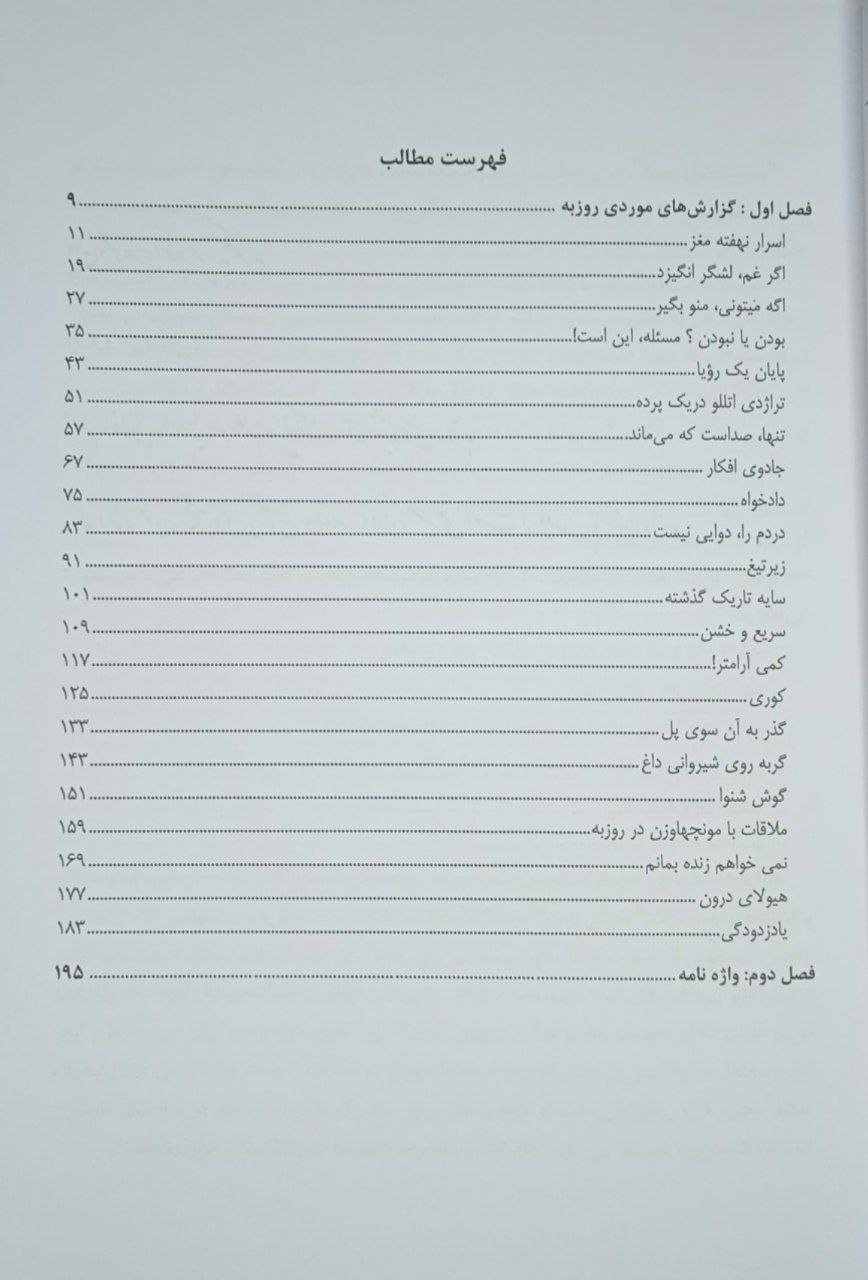 فهرست مطالب
فصل اول : گزارش‌های موردی روزبه ........ ۹
اسرار نهفته مغز ........ ۱۱
اگر غم، لشگر انگیزد ........ ۱۹
اگه مَیتونی، منو بگیر ........ ۲۷
بودن یا نبودن ؟ مسئله، این است! ........ ۳۵
پایان یک رؤیا ........ ۴۳
تراژدی اتللو دریک پرده ........ ۵۱
تنها، صداست که می‌ماند ........ ۵۷
جادوی افکار ........ ۶۷
دادخواه ........ ۷۵
دردم را، دوایی نیست ........ ۸۳
زیرتیغ ........ ۹۱
سایه تاریک گذشته ........ ۱۰۱
سریع و خشن ........ ۱۰۹
کمی آرامتر! ........ ۱۱۷
کوری ........ ۱۲۵
گذر به آن سوی پل ........ ۱۳۳
گربه روی شیروانی داغ ........ ۱۴۳
گوش شنوا ........ ۱۵۱
ملاقات با مونچهاوزن در روزبه ........ ۱۵۹
نمی خواهم زنده بمانم ........ ۱۶۹
هیولای درون ........ ۱۷۷
یادزدودگی ........ ۱۸۳
فصل دوم: واژه نامه ........ ۱۹۵